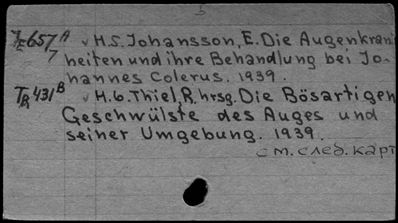 5
7E657A v H.5. Johansson, E. Die Augenkrank
7 heiten und ihre Behandlung bei Jo-
hannes Colerus. 1939.
TR431B v H.6. Thiel, R. hrsg. Die Bösartigen
Geschwülste des Auges und
seiner Umgebung. 1939.
см. след. карт